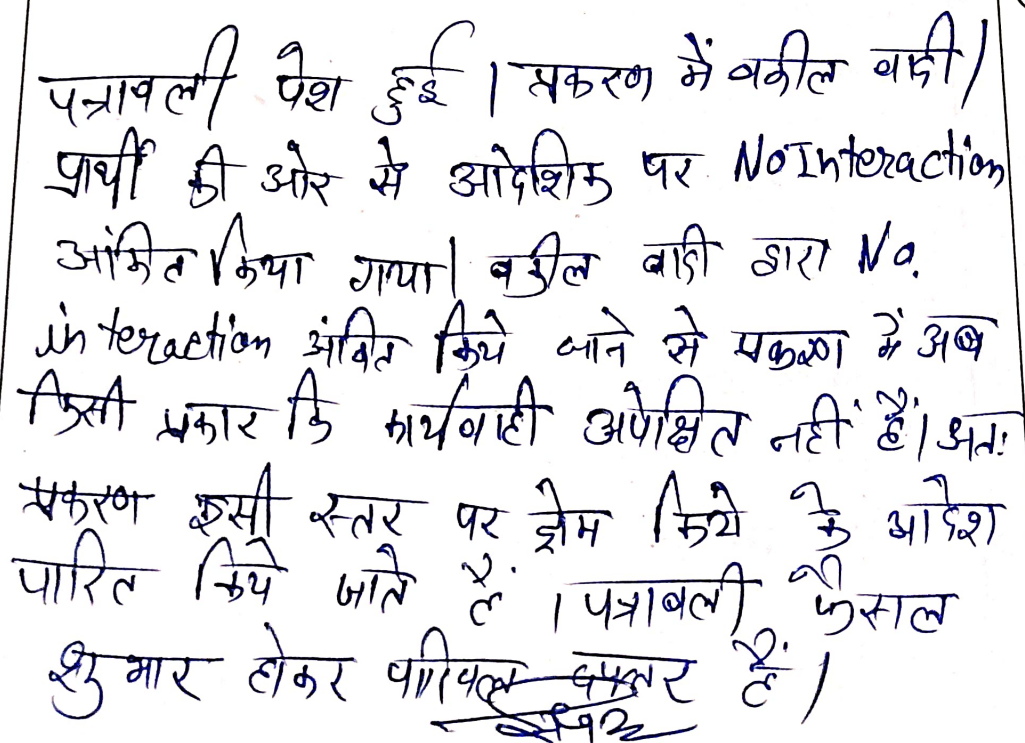 पत्रावली पेश हुई । प्रकरण में वकील वादी/
प्रार्थी की ओर से आदेशिका पर No Interaction
अंकित किया गया। वकील वादी द्वारा No.
interaction अंकित किये जाने से प्रकरण में अब
किसी प्रकार कि कार्यवाही अपेक्षित नहीं हैं। अतः
प्रकरण इसी स्तर पर ड्रोप किये के आदेश
पारित किये जाते हैं । पत्रावली फैसल
शुमार होकर दफ्तर हैं।